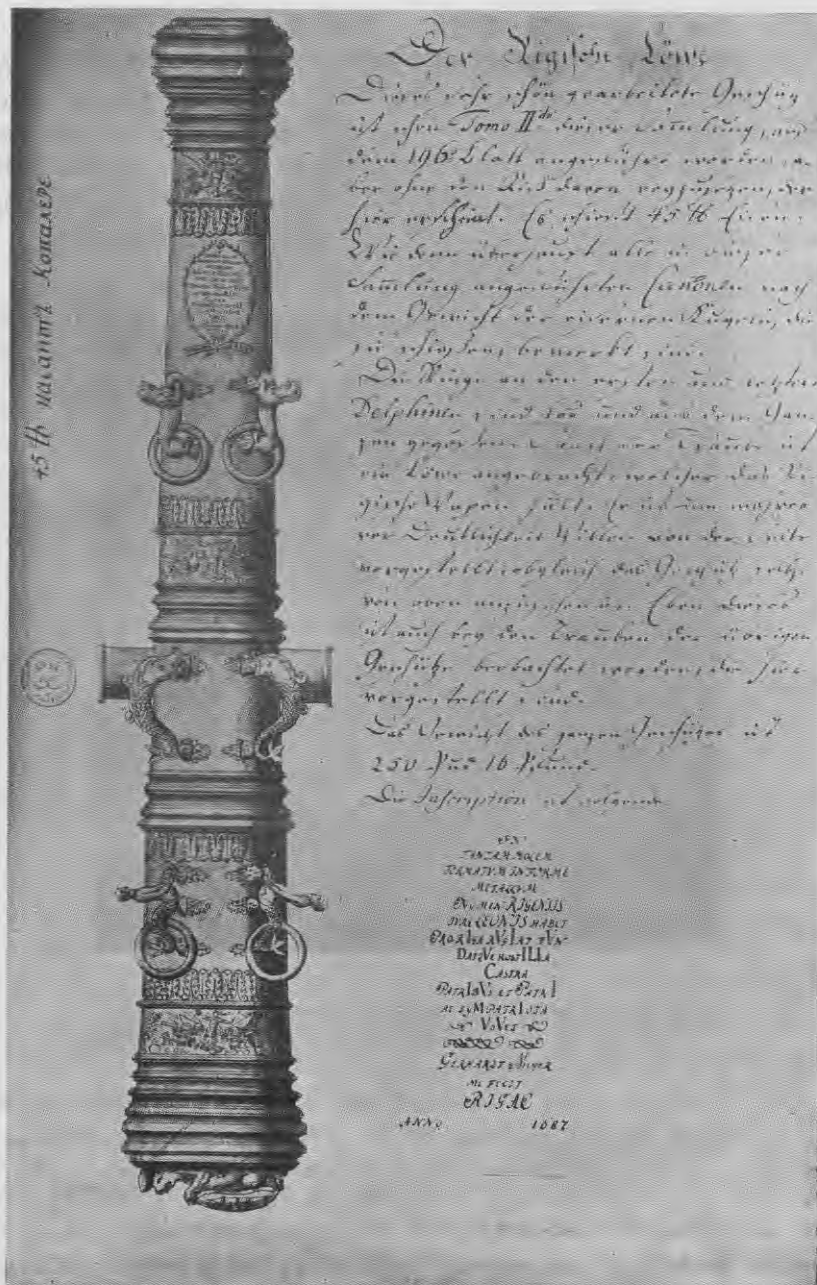 Der Rigische Löwe
Dieses sehr schön gearbeitete Geschüz
ist schon Tomo II do dieser Sammlung, auf
dem 196t Blatt angeführt worden, a-
ber ohne den Riß davon beyzusezen, der
hier erscheint. Es schiest 45 ℔ Eisen.
Wie denn überhaupt alle in dieser
Sammlung angeführten Canonen nach
dem Gewicht der eisernen Kugeln, die
sie schiessen, bemerkt sind.
Die Ringe an den ersten und letzten
Delphinen sind los und aus dem Gan-
zen gegossen. Auf der Traube ist
ein Löwe angebracht, welcher das Ri-
gische Wapen hält. Er ist um mehre-
rer Deutlichkeit Willen von der Seite
vorgestellt, obgleich das Geschüz selbst
von oben anzusehen ist. Eben dieses
ist auch bey den Trauben der übrigen
Geschütze beobachtet worden, die hier
vorgestellt sind.
Das Gewicht des ganzen Geschützes ist
250 Pud 16 Pfund.
Die Inscription ist folgende
TANTAM MOLEM
METALLUM
RIGENSIS
CASTRA
VoVet
GERHARDT MEYER
ME FECIT
RIGAE
ANNO 1687
45 ℔